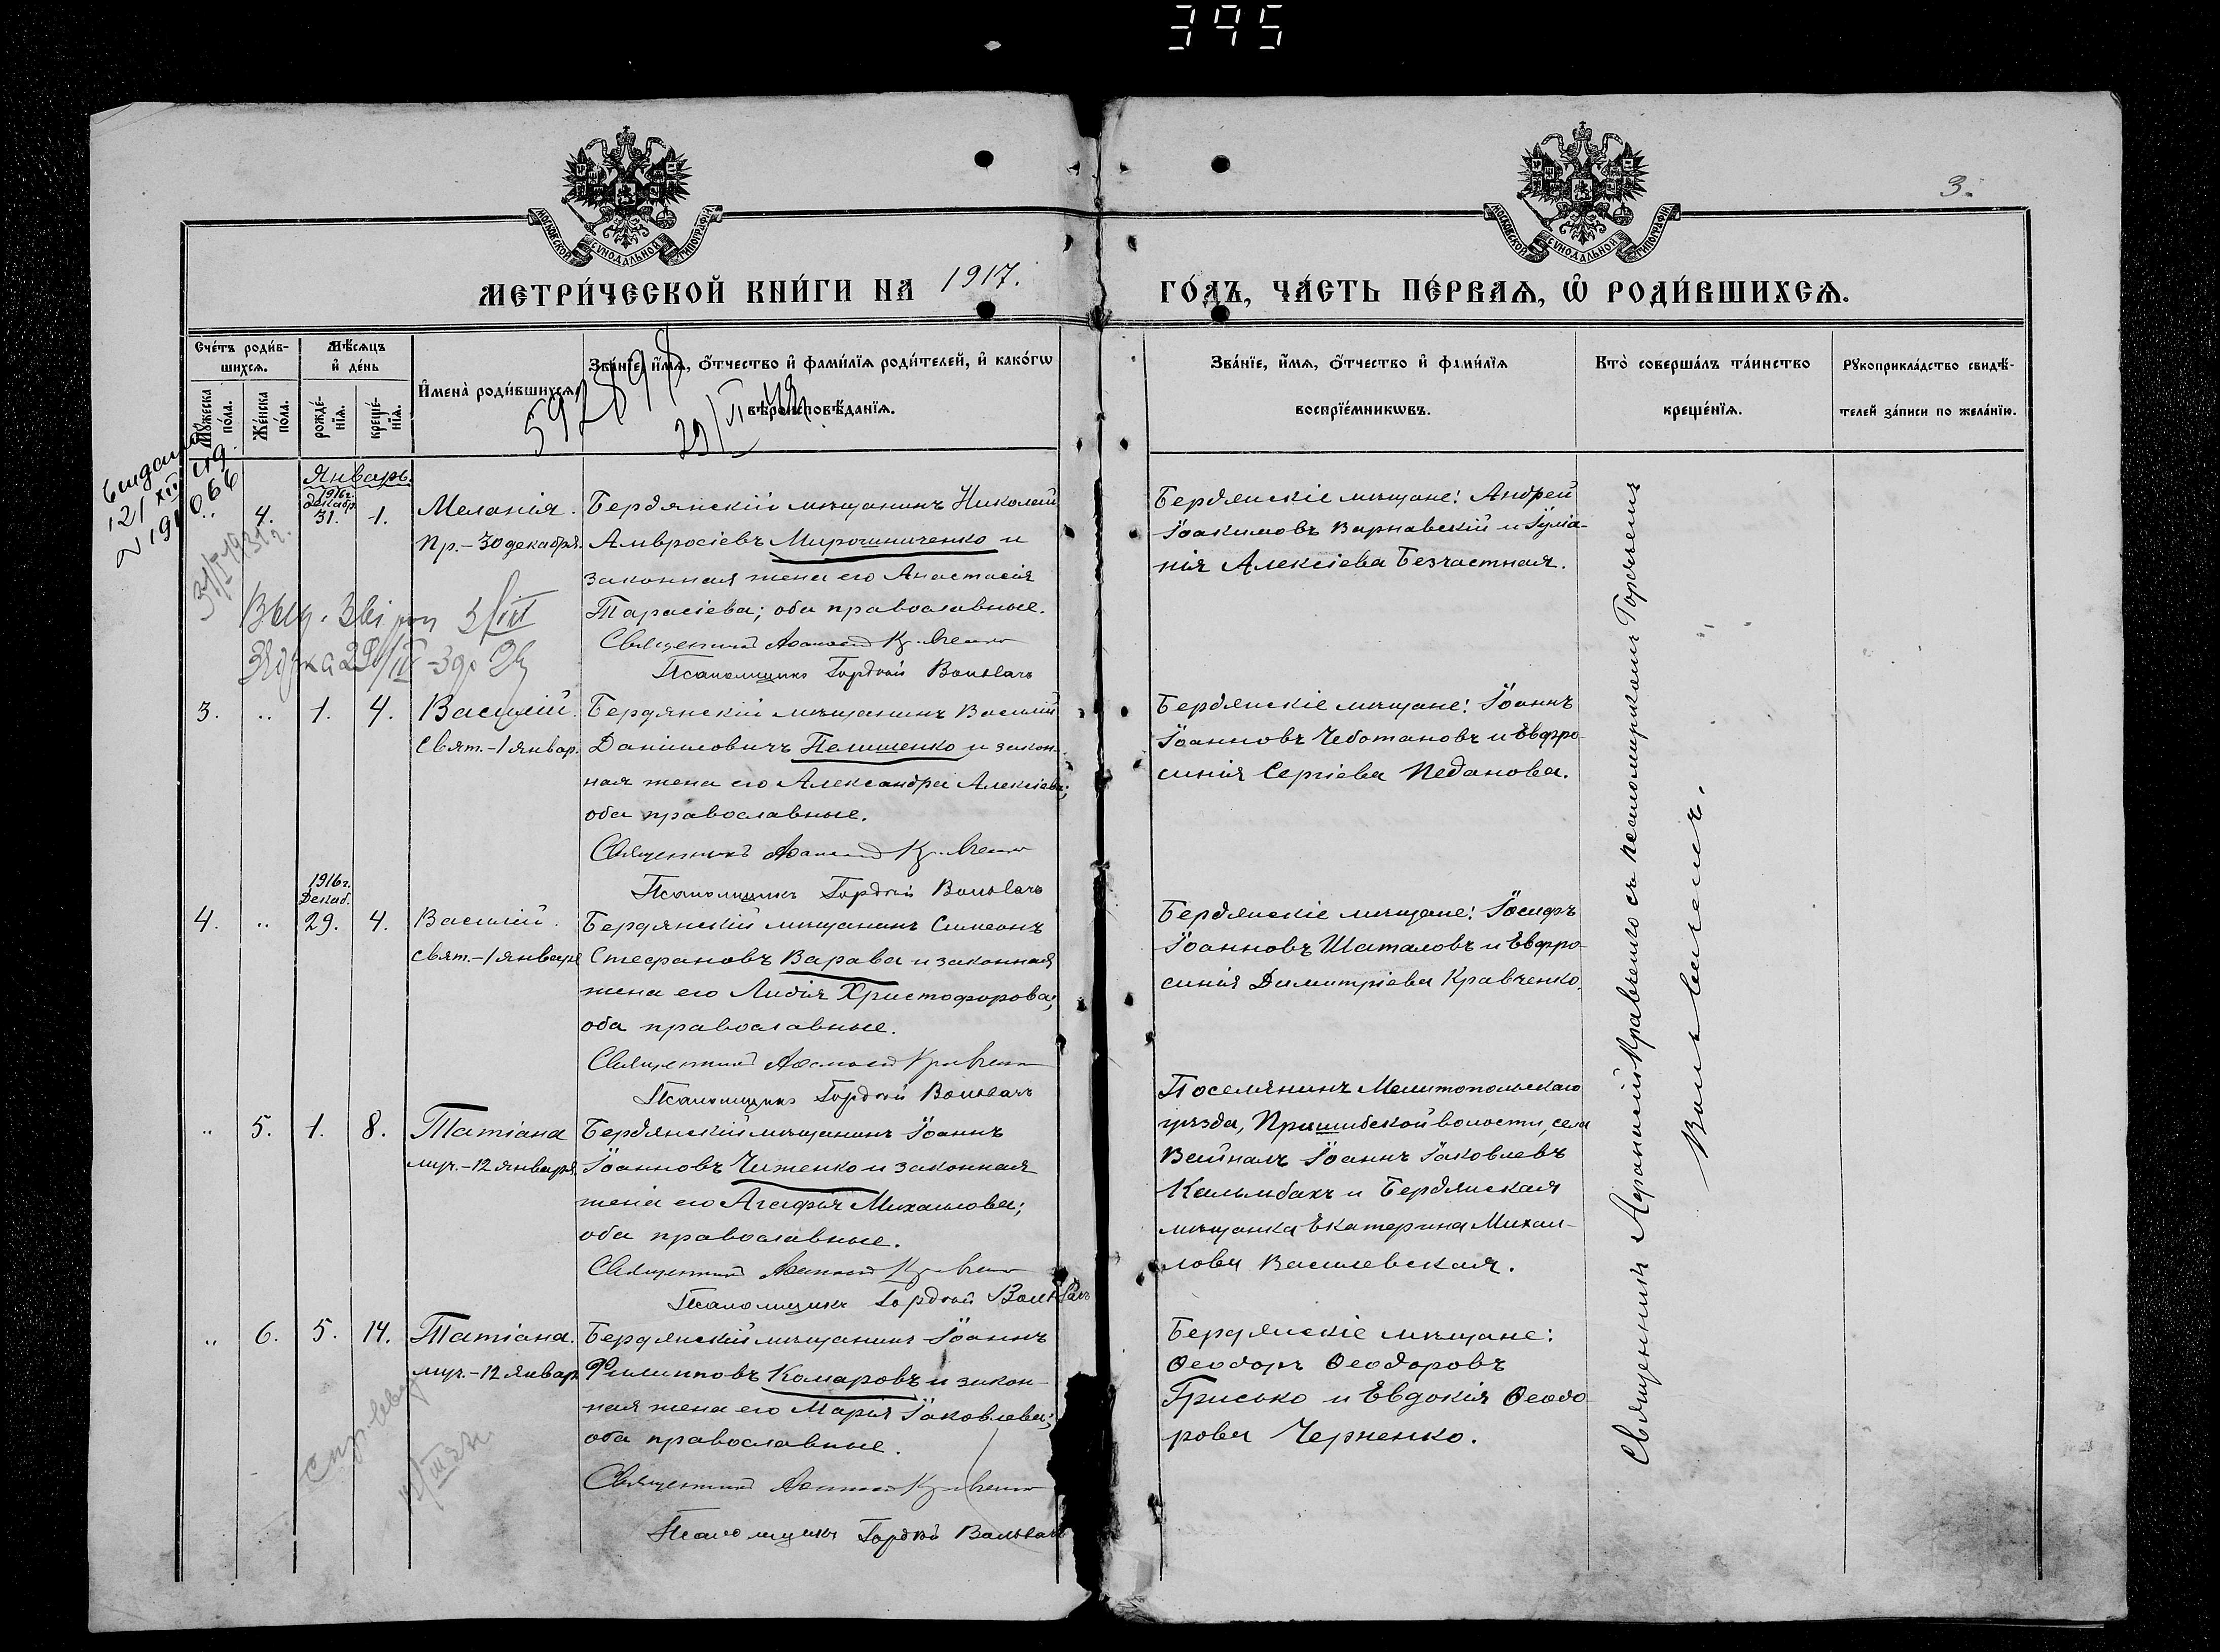 395
МОСКОВСКОЙ СѴНОДАЛЬНОЙ ТИПОГРАФІИ
МОСКОВСКОЙ СѴНОДАЛЬНОЙ ТИПОГРАФІИ
3.
МЕТРИ́ЧЕСКОЙ КНИ́ГИ НА 1917.
ГО́ДЪ, ЧА́СТЬ ПЕ́РВАѦ, Ѡ РОДИ́ВШИХСѦ.
Сче́тъ роди́в-
шихсѧ.
Мѣ́сѧцъ
и҆ де́нь
Мꙋжеска
по́ла.
Же́нска
по́ла.
рожде́-
нїѧ.
креще́-
нїѧ.
И҆мена̀ роди́вшихсѧ.
Зва́нїе, и҆́мѧ, ѻ҆́тчество и҆ фами́лїѧ роди́телей, и҆ како́гѡ
вѣроисповѣ́данїѧ.
Зва́нїе, и҆́мѧ, ѻ҆́тчество и҆ фами́лїѧ
воспрїе́мникѡвъ.
Кто̀ соверша́лъ та́инство
креще́нїѧ.
Рꙋкоприкла́дство свидѣ́-
телей за́писи по жела́нїю.
Январь.
1916 г.
декабр.
„ 4. 31. 1.
Меланія.
Пр.-30 декабря.
Бердянскій мѣщанинъ Николай
Амвросіевъ Мирошниченко и
законная жена его Анастасія
Тарасіева; оба православные.
Священникъ Афанасій Кравченко
Псаломщикъ Гордій Вольвачъ
Бердянскіе мѣщане: Андрей
Іоакимовъ Варнавскій и Іуліа-
нія Алексіева Безчастная.
3. „ 1. 4.
Василій.
Свят.-1 январ.
Бердянскій мѣщанинъ Василій
Даніиловичъ Пелишенко и закон-
ная жена его Александра Алексіева;
оба православные.
Священникъ Афанасій Кравченко
Псаломщикъ Гордій Вольвачъ
Бердянскіе мѣщане: Іоаннъ
Іоанновъ Чеботановъ и Евфро-
синія Сергіева Педанова.
1916 г.
Декаб.
4. „ 29. 4.
Василій.
свят.-1 января
Бердянскій мѣщанинъ Симеонъ
Стефановъ Варава и законная
жена его Лидія Христофорова;
оба православные.
Священникъ Афанасій Кравченко
Псаломщикъ Гордій Вольвачъ
Бердянскіе мѣщане: Іосифъ
Іоанновъ Шаталовъ и Евфро-
синія Димитріева Кравченко.
„ 5. 1. 8.
Татіана
муч.-12 января
Бердянскій мѣщанинъ Іоаннъ
Іоанновъ Чиженко и законная
жена его Агафія Михаилова;
оба православные.
Священникъ Афанасій Кравченко
Псаломщикъ Гордій Вольвачъ
Поселянинъ Мелитопольскаго
уѣзда, Пришибской волости, села
Вейнау Іоаннъ Іаковлевъ
Кальмбахъ и Бердянская
мѣщанка Екатерина Михаи-
лова Василевская.
„ 6. 5. 14.
Татіана.
муч.-12 январ.
Бердянскій мѣщанинъ Іоаннъ
Филипповъ Комаровъ и закон-
ная жена его Марія Іаковлева;
оба православные.
Священникъ Афанасій Кравченко
Псаломщикъ Гордій Вольвачъ
Бердянскіе мѣщане:
Ѳеодоръ Ѳеодоровъ
Грисько и Евдокія Ѳеодо-
рова Черненко.
Священникъ Афанасій Кравченко съ псаломщикомъ Гордіемъ
Вольвачемъ.